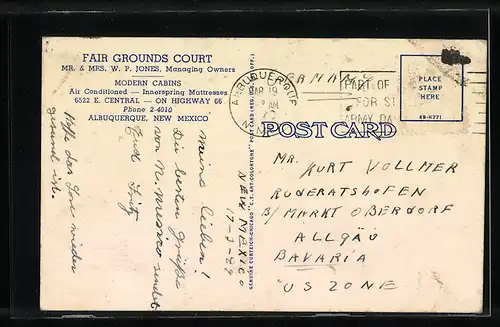 FAIR GROUNDS COURT
MR. & MRS. W. P. JONES, Managing Owners
MODERN CABINS
Air Conditioned — Innerspring Mattresses
6522 E. CENTRAL — ON HIGHWAY 66
Phone 2-4010
ALBUQUERQUE, NEW MEXICO
NEW MEXICO
17-3-49
Meine Lieben!
Die besten Grüße
von N. Mexico sendet
Euch Fritz
Hoffe das Lore wieder
gesund ist.
GENUINE CURTEICH-CHICAGO "C.T. ART-COLORTONE" POST CARD
ALBUQUERQUE
MAR 19
AM
N
PART OF
FOR S
ARMY DAY
PLACE
STAMP
HERE
8B-H771
POST CARD
MR. KURT VOLLMER
RUDERATSHOFEN
B/ MARKT OBERDORF
ALLGÄU
BAVARIA
US ZONE